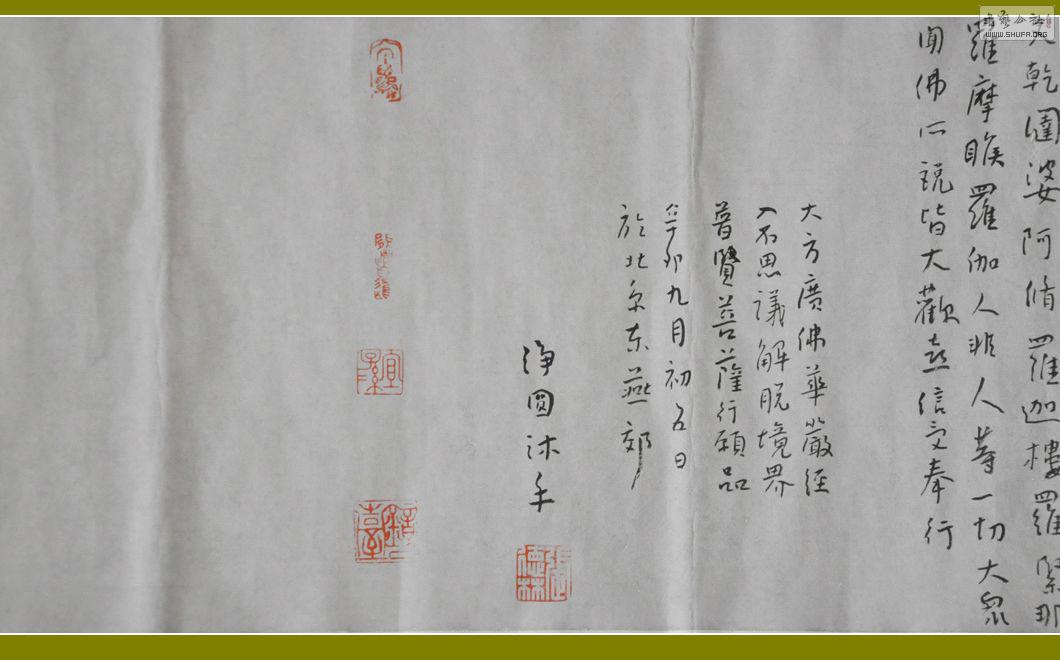 乾闥婆阿脩羅迦樓羅緊那
羅摩睺羅伽人非人等一切大眾
聞佛所說皆大歡喜信受奉行
大方廣佛華嚴經
入不思議解脫境界
普賢菩薩行願品
辛卯九月初五日
於北京东燕郊
淨圓沐手
張德林
宜子孫
WWW.SHUFA.ORG